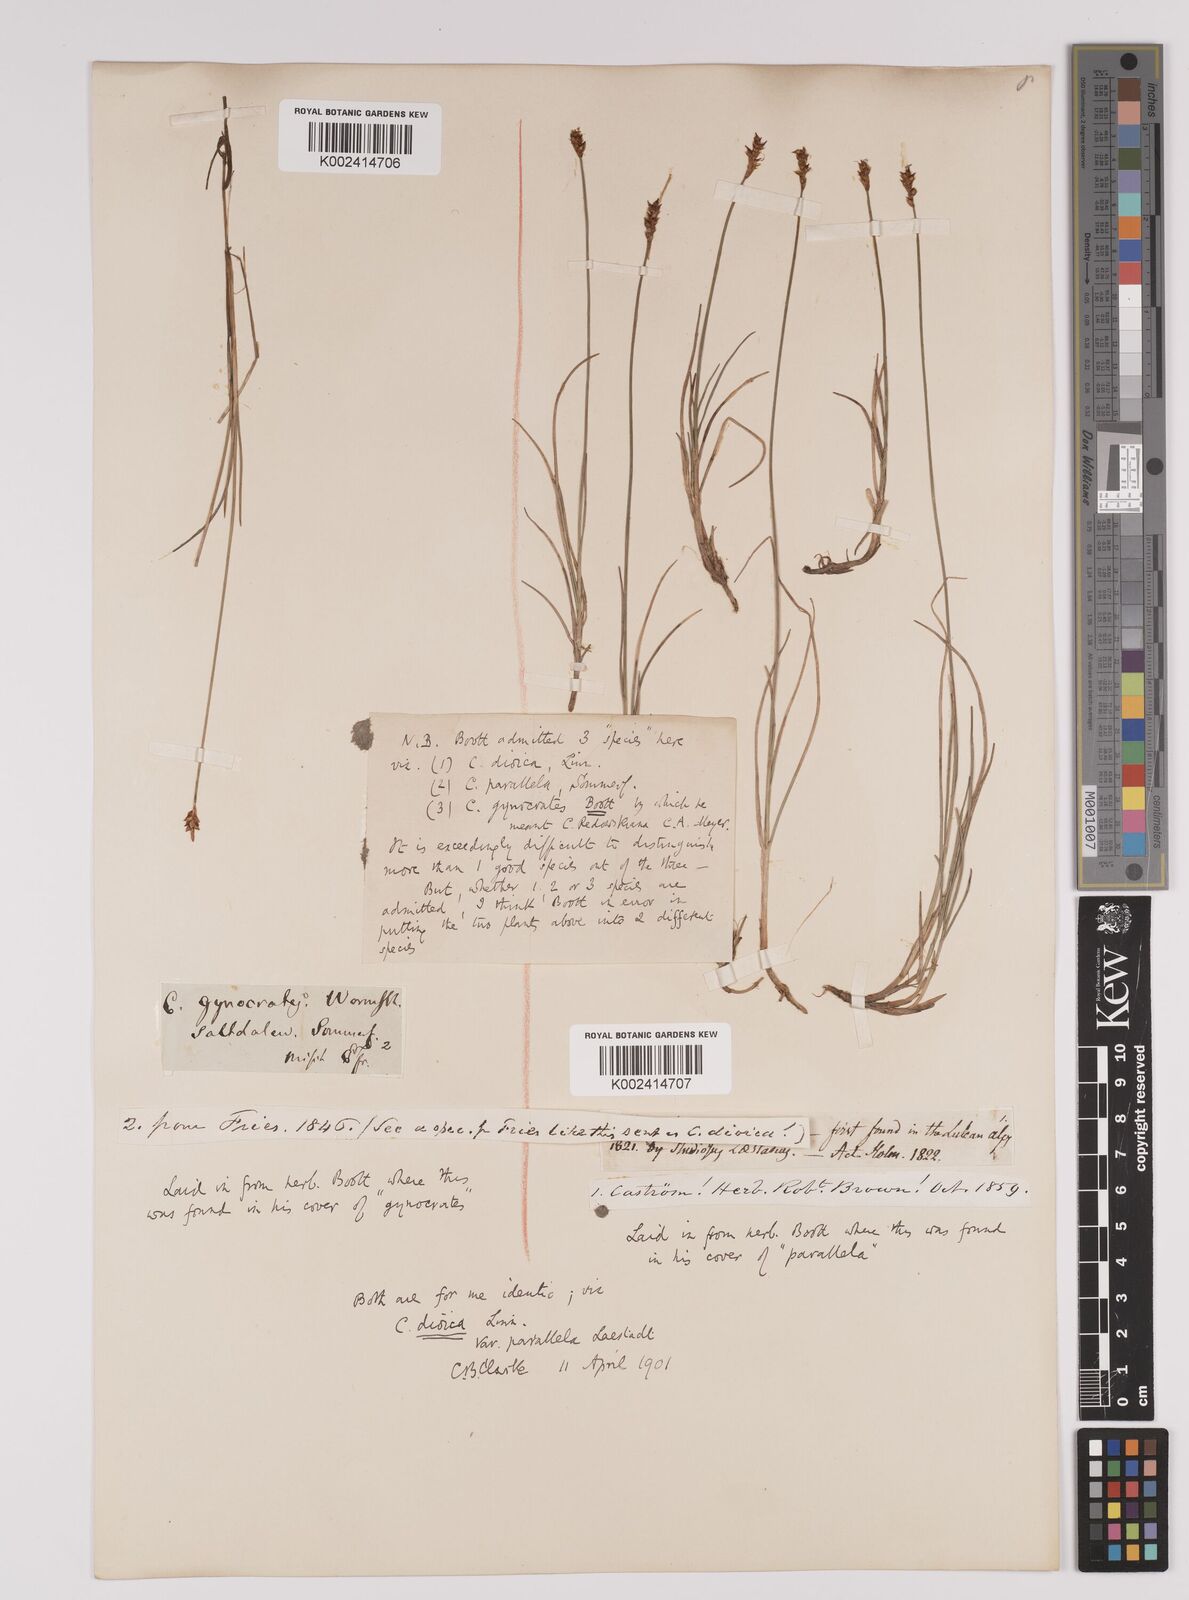 ROYAL BOTANIC GARDENS KEW
K002414706
N.B. Boott admitted 3 "species" here
viz. (1) C. dioica, Linn.
(2) C. parallela, Sommerf.
(3) C. gynocrates Boott by which he
meant C. Redowskiana C.A. Meyer.
It is exceedingly difficult to distinguish
more than 1 good species out of the three —
But, whether 1, 2 or 3 species are
admitted, I think Boott in error in
putting the two plants above into 2 different
species
C. gynocrates. Wormsk.
Saltdalen. Sommerf.
misit fr. 2
ROYAL BOTANIC GARDENS KEW
K002414707
2. from Fries. 1846. (See a spec. fr Fries like this sent as C. dioica!)
— first found in the Lulean alps
1821. by Læstadius. — Act. Holm. 1822.
1. Caström! Herb. Robt. Brown! Oct. 1859.
Laid in from herb. Boott where this
was found in his cover of "gynocrates"
Laid in from herb. Boott where this was found
in his cover of "parallela"
Both are for me identic; viz
C. dioica Linn.
var. parallela Laestadt
C.B.Clarke 11 April 1901
inches
centimeters
Density
Don Williams
M001007
Royal Botanic Gardens
Kew
copyright reserved
0 1 2 3 4 5 6 7 8 9 10
cm